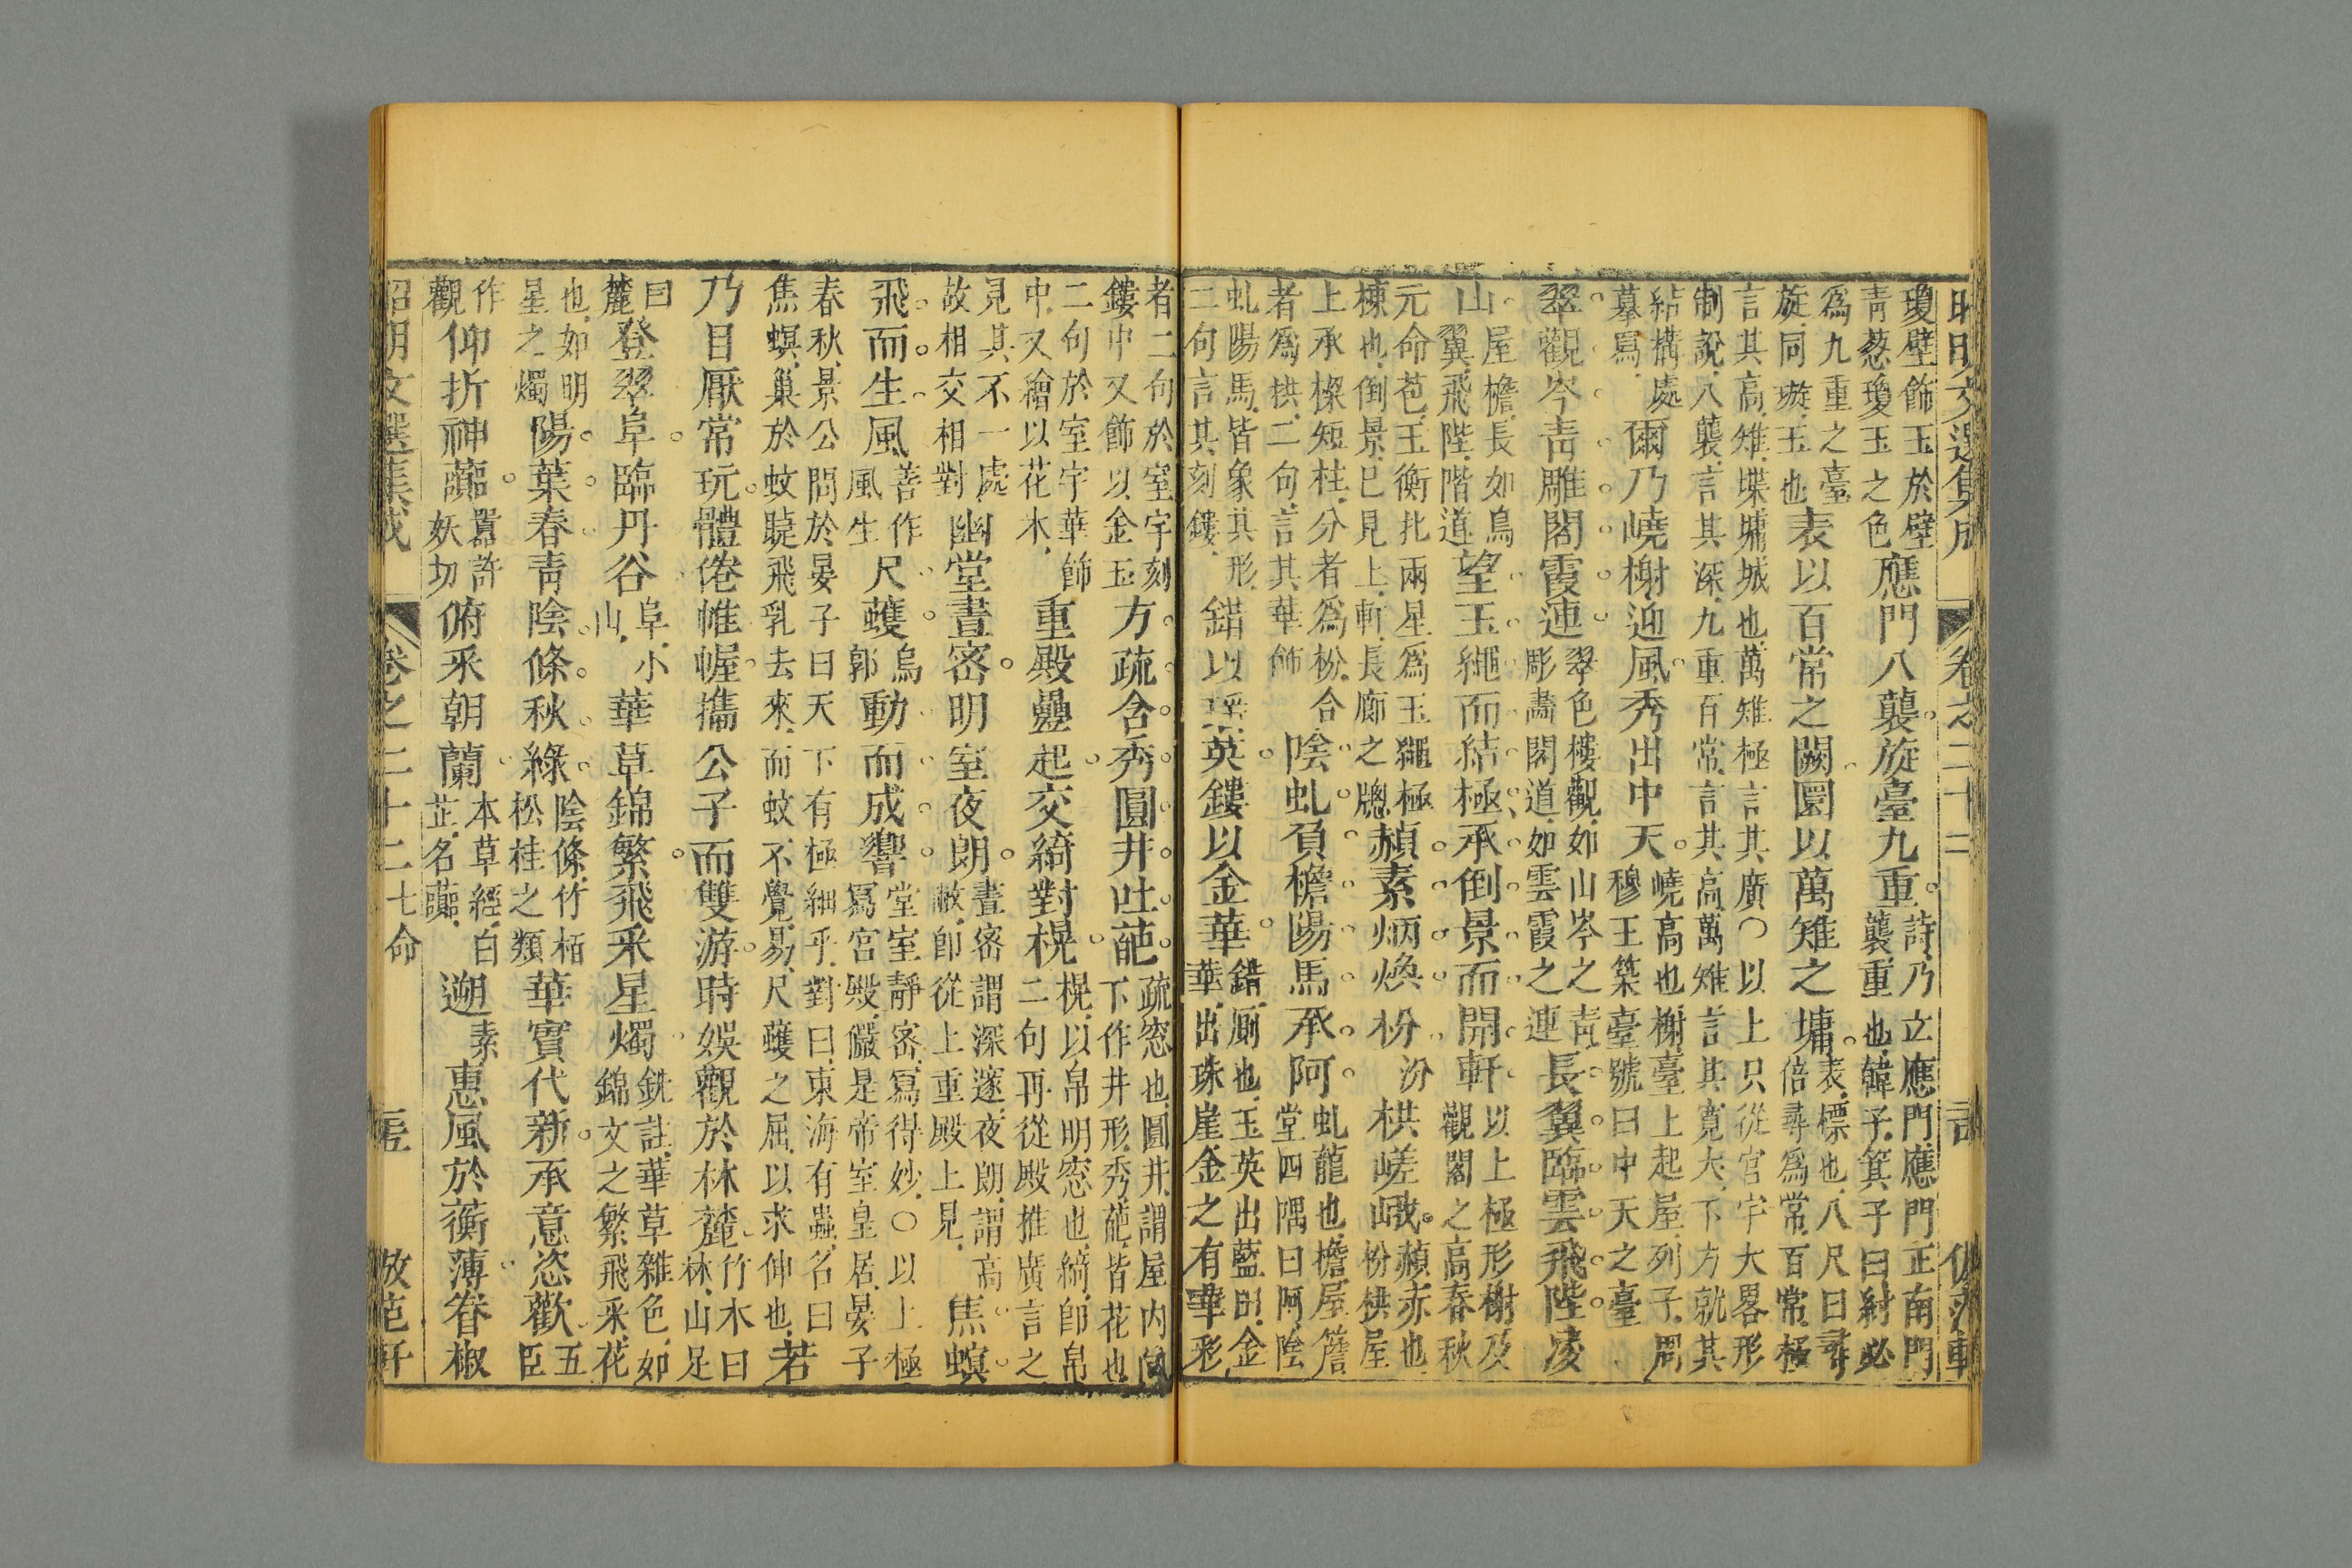 昭明文選集成 卷之二十二
瓊壁飾玉於壁
青葱瓊玉之色
應門八襲旋臺九重
詩乃立應門應門正南門
襲重也韓子箕子曰紂必
爲九重之臺
旋同璇玉也
表以百常之闕圜以萬雉之墉
表標也八尺曰尋
倍尋爲常百常極
言其高雉堞墉城也萬雉極言其廣〇以上只從宮宇大畧形
制說八襲言其深九重百常言其高萬雉言其寬大下方就其
結構處
摹寫
爾乃嶢榭迎風秀出中天
嶢高也榭臺上起屋列子周
穆王築臺號曰中天之臺
翠觀岑青雕閣霞連
翠色樓觀如山岑之青
彫畵閣道如雲霞之連
長翼臨雲飛陛凌
山
屋檐長如鳥
翼飛陛階道
望玉繩而結極承倒景而開軒
以上極形榭及
觀閣之高春秋
元命苞玉衡北兩星爲玉繩極
棟也倒景已見上軒長廊之牕
赬素炳煥枌
汾
栱嵯峨
赬赤也
枌栱屋
上承檪短柱分者爲枌合
者爲栱二句言其華飾
陰虬負檐陽馬承阿
虬龍也檐屋簷
堂四隅曰阿陰
虬陽馬皆象其形
二句言其刻鏤
錯以瑶英鏤以金華
錯廁也玉英出藍田金
華出珠崖金之有華彩
者二句於室宇刻
鏤中又飾以金玉
方疏含秀圓井吐葩
疏窓也圓井謂屋内
下作井形秀葩皆花也
二句於室宇華飾
中又繪以花木
重殿疊起交綺對榥
榥以帛明窓也綺卽帛
二句再從殿推廣言之
見其不一處
故相交相對
幽堂晝密明室夜朗
晝密謂深邃夜朗謂高
敞卽從上重殿上見
焦螟
飛而生風
善作
風生
尺蠖
烏
郭
動而成響
堂室靜密寫得妙〇以上極
寫宮殿儼是帝室皇居晏子
春秋景公問於晏子曰天下有極細乎對曰東海有蟲名曰
焦螟巢於蚊睫飛乳去來而蚊不覺易尺蠖之屈以求伸也
若
乃目厭常玩體倦帷幄攜公子而雙游時娛觀於林麓
竹木曰
林山足
曰
麓
登翠阜臨丹谷
阜小
山
華草錦繁飛采星燭
銑註華草雜色如
錦文之繁飛采花
也如明
星之燭
陽葉春青陰條秋綠
陰條竹栢
松桂之類
華實代新承意恣歡
五
臣
作
觀
仰折神虈
囂許
妖切
俯采朝蘭
本草經白
芷名虈
遡
素
惠風於蘅薄眷椒
昭明文選集成 卷之二十二 七命 倣范軒